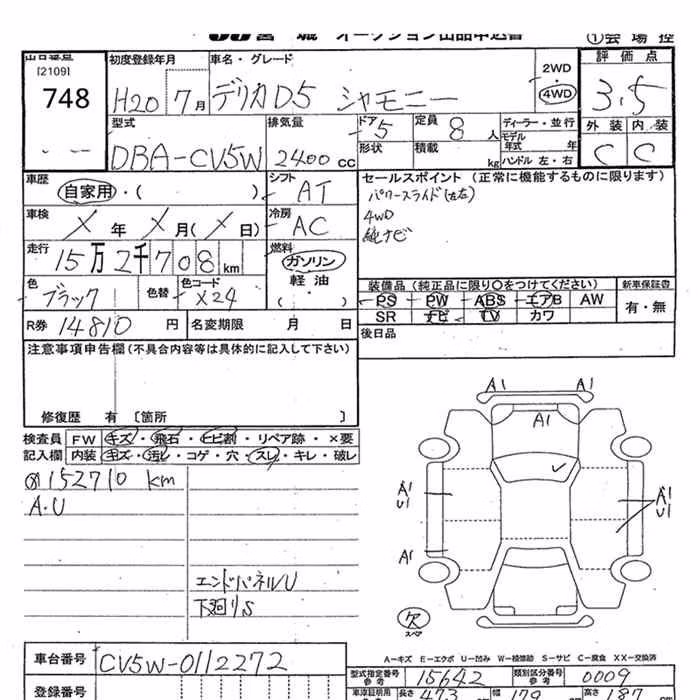 宮城 オークション出品申込書 ①会場控
出品番号
[2109]
748
初度登録年月
H20 7月
車名・グレード
デリカD5 シャモニー
2WD
・
4WD
評価点
3.5
外装 内装
C C
型式
DBA-CV5W
排気量
2400 cc
ドア 5
形状
定員 8 人
積載 kg
ディーラー・並行
モデル年式 年
ハンドル 左・右
車歴
自家用・( )
シフト
AT
車検
X 年 X 月( X 日)
冷房
AC
走行
15万2千708km
燃料
ガソリン
軽油
( )
色
ブラック
色替
色コード
X24
R券 14810 円
名変期限 月 日
セールスポイント (正常に機能するものに限ります)
パワースライド(左右)
4WD
純ナビ
装備品 (純正品に限り○をつけてください)
PS PW ABS エアB AW
SR ナビ TV カワ
新車保証書
有・無
後日品
注意事項申告欄 (不具合内容等は具体的に記入して下さい)
修復歴 有 〔箇所 〕
検査員記入欄
FW キズ・飛石・ヒビ割・リペア跡・×要
内装 キズ・汚レ・コゲ・穴・スレ・キレ・破レ
152710 km
A・U
エンドパネルU
下廻りS
A1 A1
A1
A1
U1
A1
U1
A1
欠
スペア
A-キズ E-エクボ U-凹み W-補修跡 S-サビ C-腐食 XX-交換済
車台番号
CV5W-0112272
登録番号
型式指定番号
参考
15642
類別区分番号
参考
0009
車庫証明用
参考
長さ 473 cm
幅 179 cm
高さ 187 cm